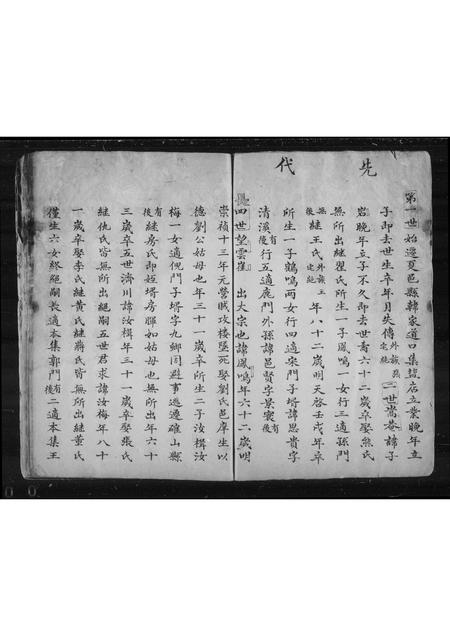 先代
第一世始遷夏邑縣韓家道口集鹽店立業晚年立
子即去世生卒年月失傳外族無定統二世嵩菴諱子
岩晚年立子不久即去世壽六十二歲卒娶熊氏
無所出繼翟氏所生一子鳳鳴一女行三適孫門
無後繼王氏外族主定統年八十二歲明天啟壬戌年卒
所生一子鶴鳴兩女行四適宋門子壻諱思貴字
清溪有後行五適鹿門外孫諱邑賢字景寰有後
四世望雲崔出大宗也諱鳳鳴年六十二歲明
崇禎十三年元營賊攻樓墜死娶劉氏邑庠生以
德劉公姑母也年三十一歲卒所生二子汝楫汝
梅一女適傀門子壻字九鄉因避事逃遷雄山縣
有後繼房氏即姪壻房暉如姑母也無所出年六十
三歲卒五世濟川諱汝楫年三十一歲卒娶張氏
繼仇氏皆無所出絕嗣五世君求諱汝梅年八十
一歲卒娶李氏繼黃氏繼蔣氏皆無所出繼董氏
僅生六女終絕嗣長適本集郭門有後二適本集王